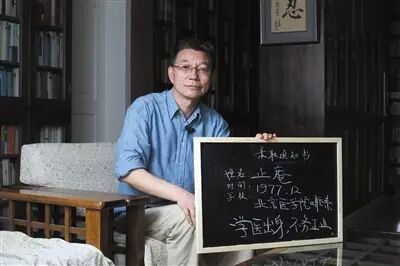 忍
录取通知书
姓名: 止庵
时间: 1977.12
学校: 北京医学院口腔系
学医出身,不务正业